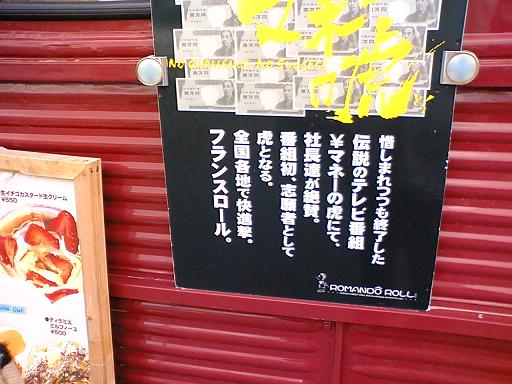 NO CHALLENGE NO SUCCESS
惜しまれつつも終了した
伝説のテレビ番組
￥マネーの虎にて、
社長達が絶賛。
番組初、志願者として
虎となる。
全国各地で快進撃。
フランスロール。
ROMANDO ROLL
生イチゴカスタード生クリーム
¥550
●ティラミス
ミルフィーユ
¥500